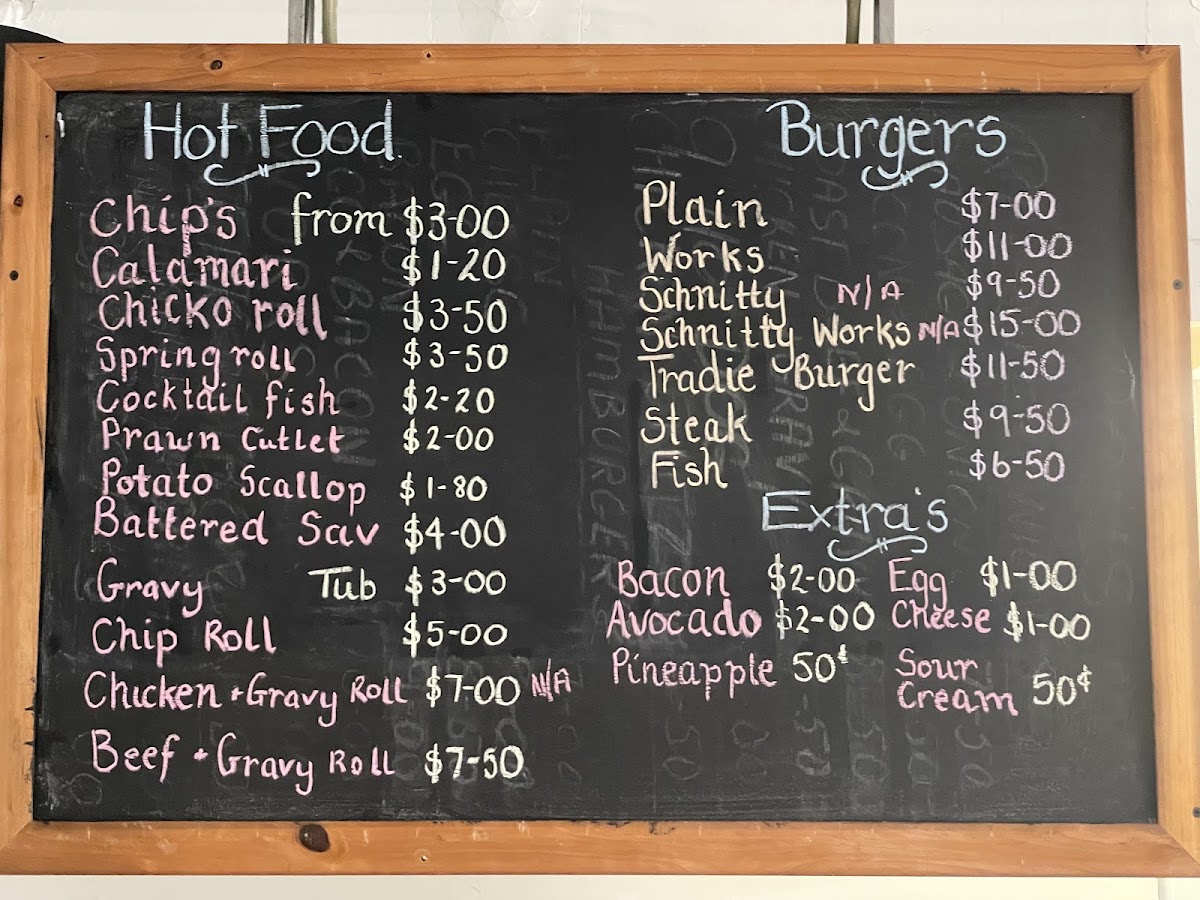 Hot Food
Chip's from $3-00
Calamari $1-20
Chicko roll $3-50
Spring roll $3-50
Cocktail fish $2-20
Prawn Cutlet $2-00
Potato Scallop $1-80
Battered Sav $4-00
Gravy Tub $3-00
Chip Roll $5-00
Chicken + Gravy Roll $7-00 N/A
Beef + Gravy Roll $7-50
Burgers
Plain $7-00
Works $11-00
Schnitty N/A $9-50
Schnitty Works N/A $15-00
Tradie Burger $11-50
Steak $9-50
Fish $6-50
Extra's
Bacon $2-00 Egg $1-00
Avocado $2-00 Cheese $1-00
Pineapple 50¢ Sour
Cream 50¢